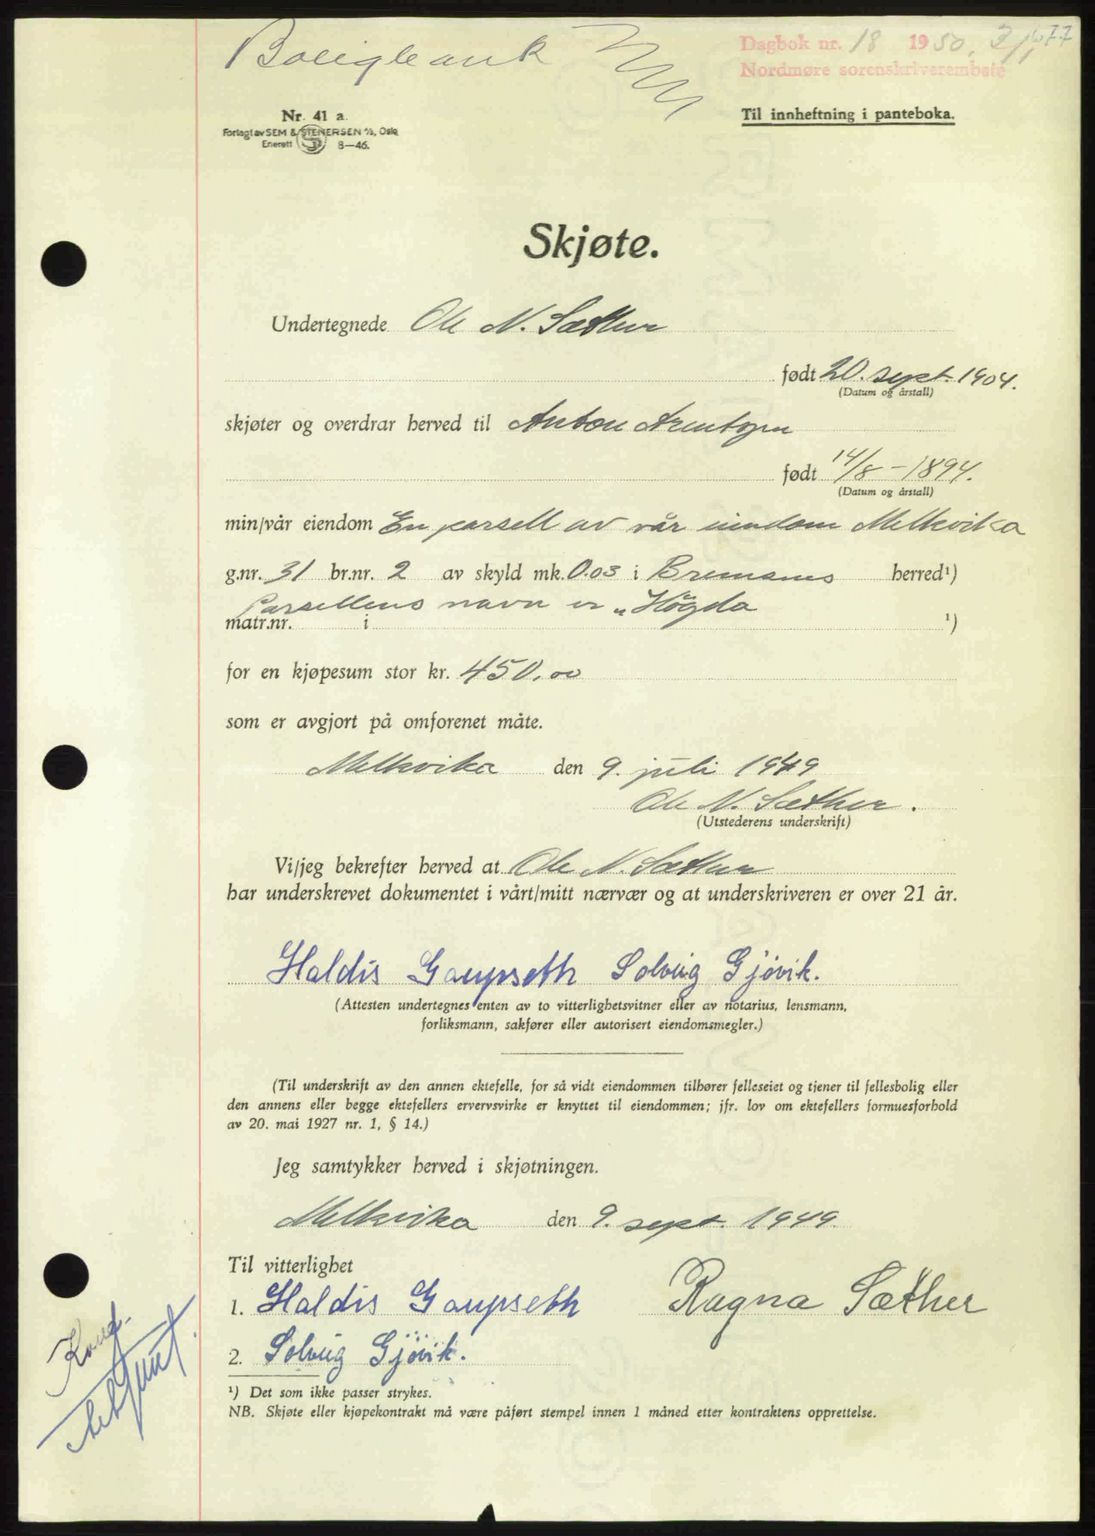 Boligbank
Dagbok nr. 18 1950, 3/1 677
Nordmøre sorenskriverembete
Nr. 41 a.
Forlagt av SEM & STENERSEN A/S, Oslo
Enerett 8—46.
Til innheftning i panteboka.
Skjøte.
Undertegnede Ole N. Sæther
født 20. sept. 1904.
(Datum og årstall)
skjøter og overdrar herved til Anton Arentsen
født 14/8 - 1894.
(Datum og årstall)
min/vår eiendom En parsell av vår eiendom Melkvika
g.nr. 31 br.nr. 2 av skyld mk. 0.03 i Bremsnes herred¹)
Parsellens navn er „Högda
matr.nr. i ¹)
for en kjøpesum stor kr. 450,00
som er avgjort på omforenet måte.
Melkvika den 9. juli 1949
Ole N. Sæther.
(Utstederens underskrift)
Vi/jeg bekrefter herved at Ole N. Sæther
har underskrevet dokumentet i vårt/mitt nærvær og at underskriveren er over 21 år.
Haldis Gaupseth Solveig Gjövik.
(Attesten undertegnes enten av to vitterlighetsvitner eller av notarius, lensmann,
forliksmann, sakfører eller autorisert eiendomsmegler.)
(Til underskrift av den annen ektefelle, for så vidt eiendommen tilhører felleseiet og tjener til fellesbolig eller
den annens eller begge ektefellers ervervsvirke er knyttet til eiendommen; jfr. lov om ektefellers formuesforhold
av 20. mai 1927 nr. 1, § 14.)
Jeg samtykker herved i skjøtningen.
Melkvika den 9. sept. 1949.
Til vitterlighet
1. Haldis Gaupseth Ragna Sæther
2. Solveig Gjövik.
¹) Det som ikke passer strykes.
NB. Skjøte eller kjøpekontrakt må være påført stempel innen 1 måned etter kontraktens opprettelse.